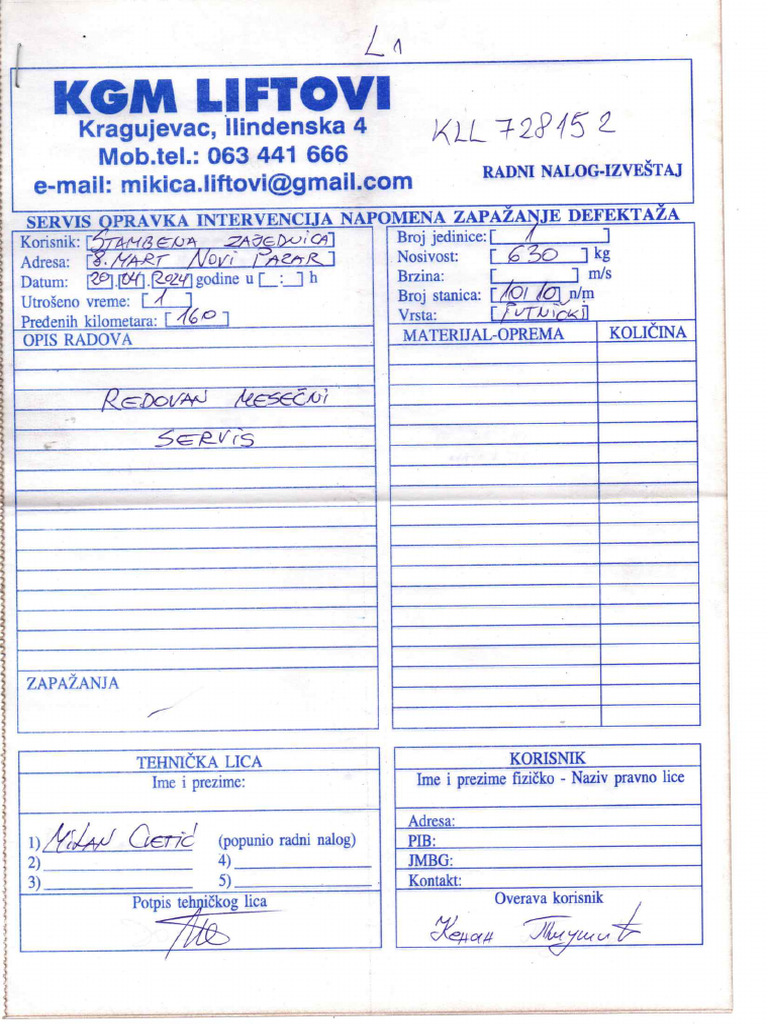 L1
KGM LIFTOVI
Kragujevac, Ilindenska 4
Mob.tel.: 063 441 666
e-mail: mikica.liftovi@gmail.com
KLL 728152
RADNI NALOG-IZVEŠTAJ
SERVIS OPRAVKA INTERVENCIJA NAPOMENA ZAPAŽANJE DEFEKTAŽA
Korisnik: [STAMBENA ZAJEDNICA]
Adresa: [8. MART NOVI PAZAR]
Datum: [20].[04].[2024] godine u [ : ] h
Utrošeno vreme: [1]
Pređenih kilometara: [160]
Broj jedinice: [1]
Nosivost: [630] kg
Brzina: [ ] m/s
Broj stanica: [10/10] n/m
Vrsta: [PUTNIČKI]
OPIS RADOVA
REDOVAN MESEČNI
SERVIS
MATERIJAL-OPREMA KOLIČINA
ZAPAŽANJA
TEHNIČKA LICA
Ime i prezime:
1) MILAN (popunio radni nalog)
2) 4)
3) 5)
Potpis tehničkog lica
KORISNIK
Ime i prezime fizičko - Naziv pravno lice
Adresa:
PIB:
JMBG:
Kontakt:
Overava korisnik
Кенан